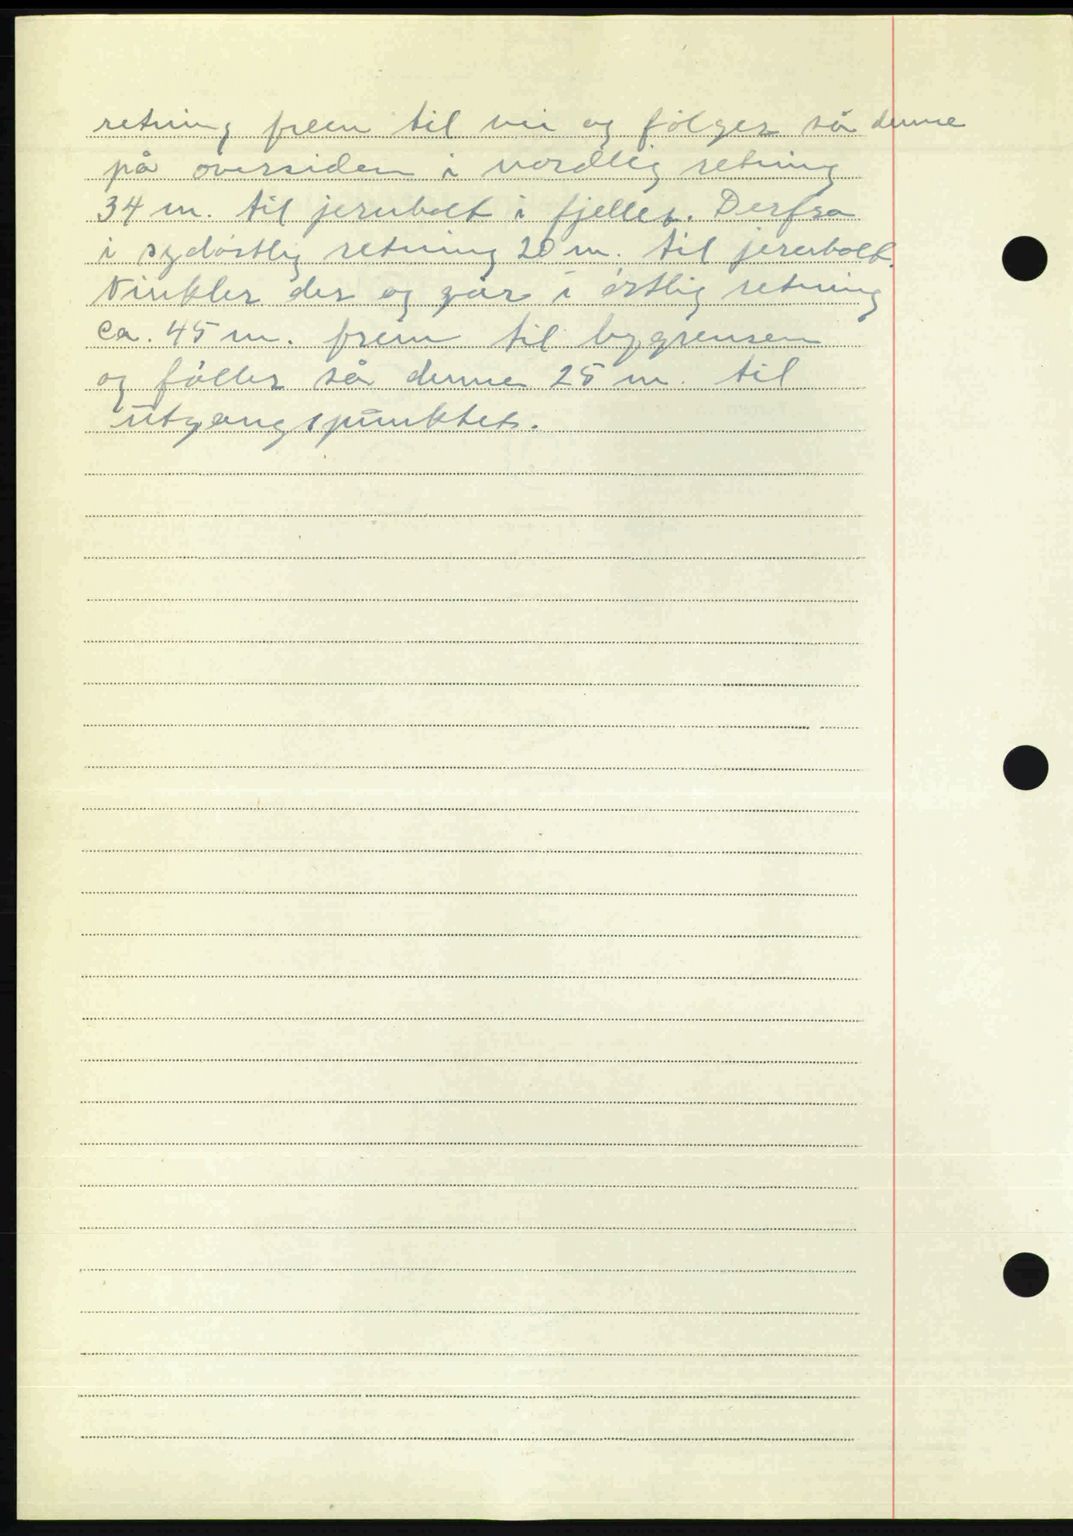 retning frem til vei og følger så denne
på oversiden i nordlig retning
34 m. til jernbolt i fjellet. Derfra
i sydøstlig retning 20 m. til jernbolt.
Vinkler der og går i østlig retning
ca. 45 m. frem til bygrensen
og føller så denne 25 m. til
utgangspunktet.